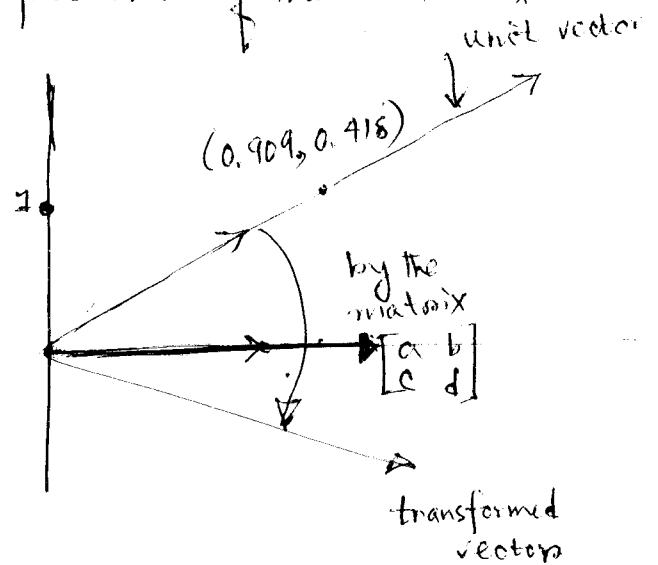 unit vector
(0.909, 0.418)
1
by the
matrix
[a b
c d]
transformed
vector